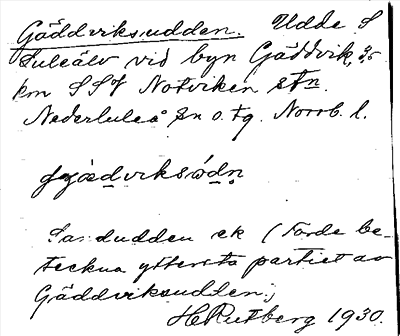 Gäddviksudden. Udde S
Luleälv vid byn Gäddvik, 3,5
km SSV Notviken stn.
Nederluleå sn o. tg. Norrb. l.
Sandudden ek (Torde be-
teckna yttersta partiet av
Gäddviksudden;
HRutberg 1930.